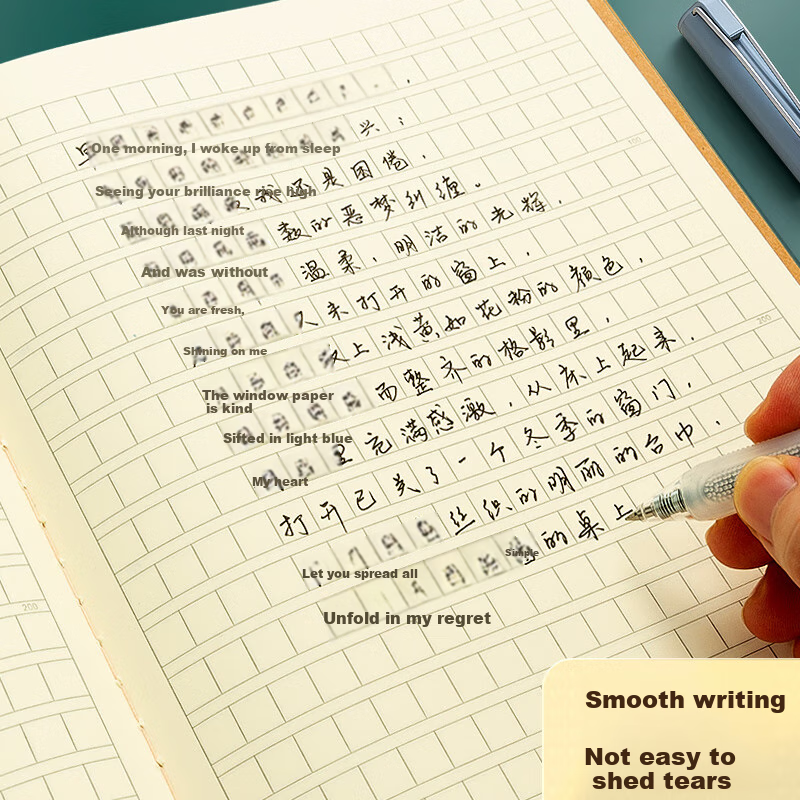 One morning, I woke up from sleep
兴；
Seeing your brilliance rise high
是困倦，
Although last night
数的恶梦纠缠。
And was without
温柔，明洁的光辉，
You are fresh,
又来打开的窗上，
Shining on me
又上浅黄如花粉的颜色，
The window paper
is kind
而整齐的格影里，
Sifted in light blue
里充满感激，从床上起来，
My heart
打开已关了一个冬季的窗门，
丝织的明丽的台巾，
Simple
的桌上
Let you spread all
Unfold in my regret
100
200
200
Smooth writing
Not easy to
shed tears